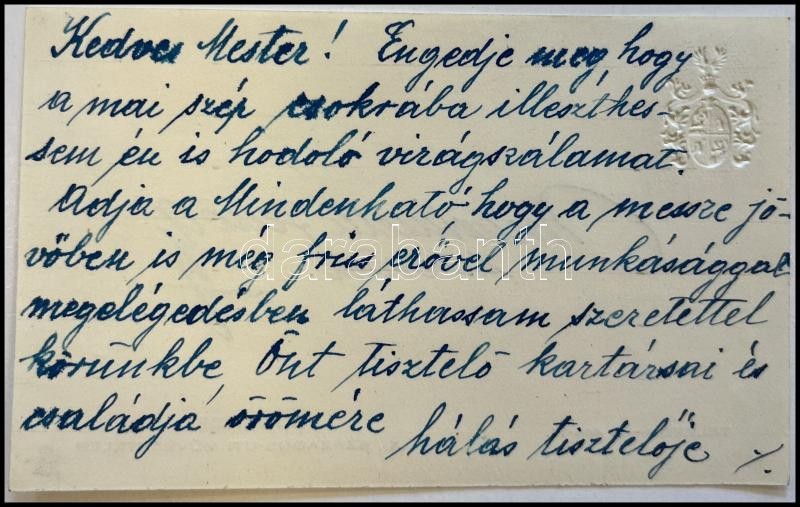 Kedves Mester! Engedje meg, hogy
a mai szép csokrába illeszthes-
sem én is hodoló virágszálamat.
Adja a Mindenható hogy a messze jö-
vőben is még friss erővel munkásággal
megelégedésben láthassam szeretettel
körünkbe Önt tisztelő kartársai és
családja örömére
hálás tisztelője ./.
darabanth